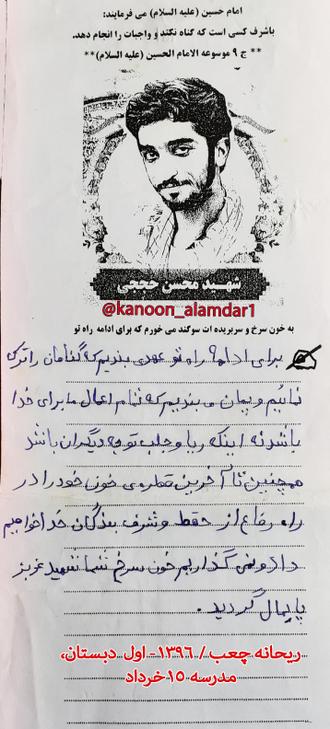 امام حسین (علیه السلام) می فرمایند:
باشرف کسی است که گناه نکند و واجبات را انجام دهد.
** ج ۹ موسوعه الامام الحسین (علیه السلام)**
شهید محسن حججی
@kanoon_alamdar1
به خون سرخ و سربریده ات سوگند می خورم که برای ادامه راه تو
برای ادامه راه تو عهدی بندیم که گناهان را ترک
نمائیم و پیمان می بندیم که تمام اعمال ما برای خدا
باشد نه اینکه ریا و جلب توجه دیگران باشد
همچنین تا آخرین قطره ی خون خود را در
راه دفاع از حفظ و شرف بندگان خدا خواهیم
داد و نمی گذاریم خون سرخ شما شهید عزیز
پایمال گردید.
ریحانه چعب / ۱۳۹۶- اول دبستان،
مدرسه ۱۵ خرداد